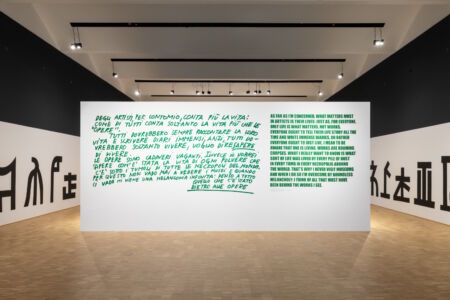 DEGLI ARTISTI, PER CONTO MIO, CONTA PIÙ LA VITA:
COME DI TUTTI CONTA SOLTANTO LA VITA PIÙ CHE LE
"OPERE".
TUTTI DOVREBBERO SEMPRE RACCONTARE LA LORO
VITA E SCRIVERE DIARI IMMENSI, ANZI, TUTTI DO-
VREBBERO SOLTANTO VIVERE, VOGLIO DIRE SAPERE
DI VIVERE.
LE OPERE SONO CADAVERI VAGANTI. INVECE IO VORREI
SAPERE COM'È STATA LA VITA DI OGNI POLVERE CHE
C'È SOTTO I TUMULI DI TUTTE LE NECROPOLI DEL MONDO.
PER QUESTO NON VADO MAI A VEDERE I MUSEI E QUANDO
CI VADO MI VIENE UNA MELANCONIA INFINITA: PENSO A TUTTO
QUELLO CHE C'È STATO
DIETRO ALLE OPERE
AS FAR AS I'M CONCERNED, WHAT MATTERS MOST
IN ARTISTS IS THEIR LIVES: JUST AS, FOR EVERYONE,
ONLY LIFE IS WHAT MATTERS, NOT WORKS.
EVERYONE OUGHT TO TELL THEIR LIFE STORY ALL THE
TIME AND WRITE IMMENSE DIARIES, OR RATHER
EVERYONE OUGHT TO JUST LIVE, I MEAN TO BE
AWARE THAT ONE IS ALIVE. WORKS ARE ROAMING
CORPSES. WHAT I REALLY WANT TO KNOW IS WHAT
SORT OF LIFE WAS LIVED BY EVERY PILE OF DUST
UNDER TOMBS IN EVERY NECROPOLIS AROUND
THE WORLD. THAT'S WHY I NEVER VISIT MUSEUMS
AND WHEN I DO SO I'M OVERCOME BY BOUNDLESS
MELANCHOLY: I THINK OF ALL THAT MUST HAVE
BEEN BEHIND THE WORKS I SEE.